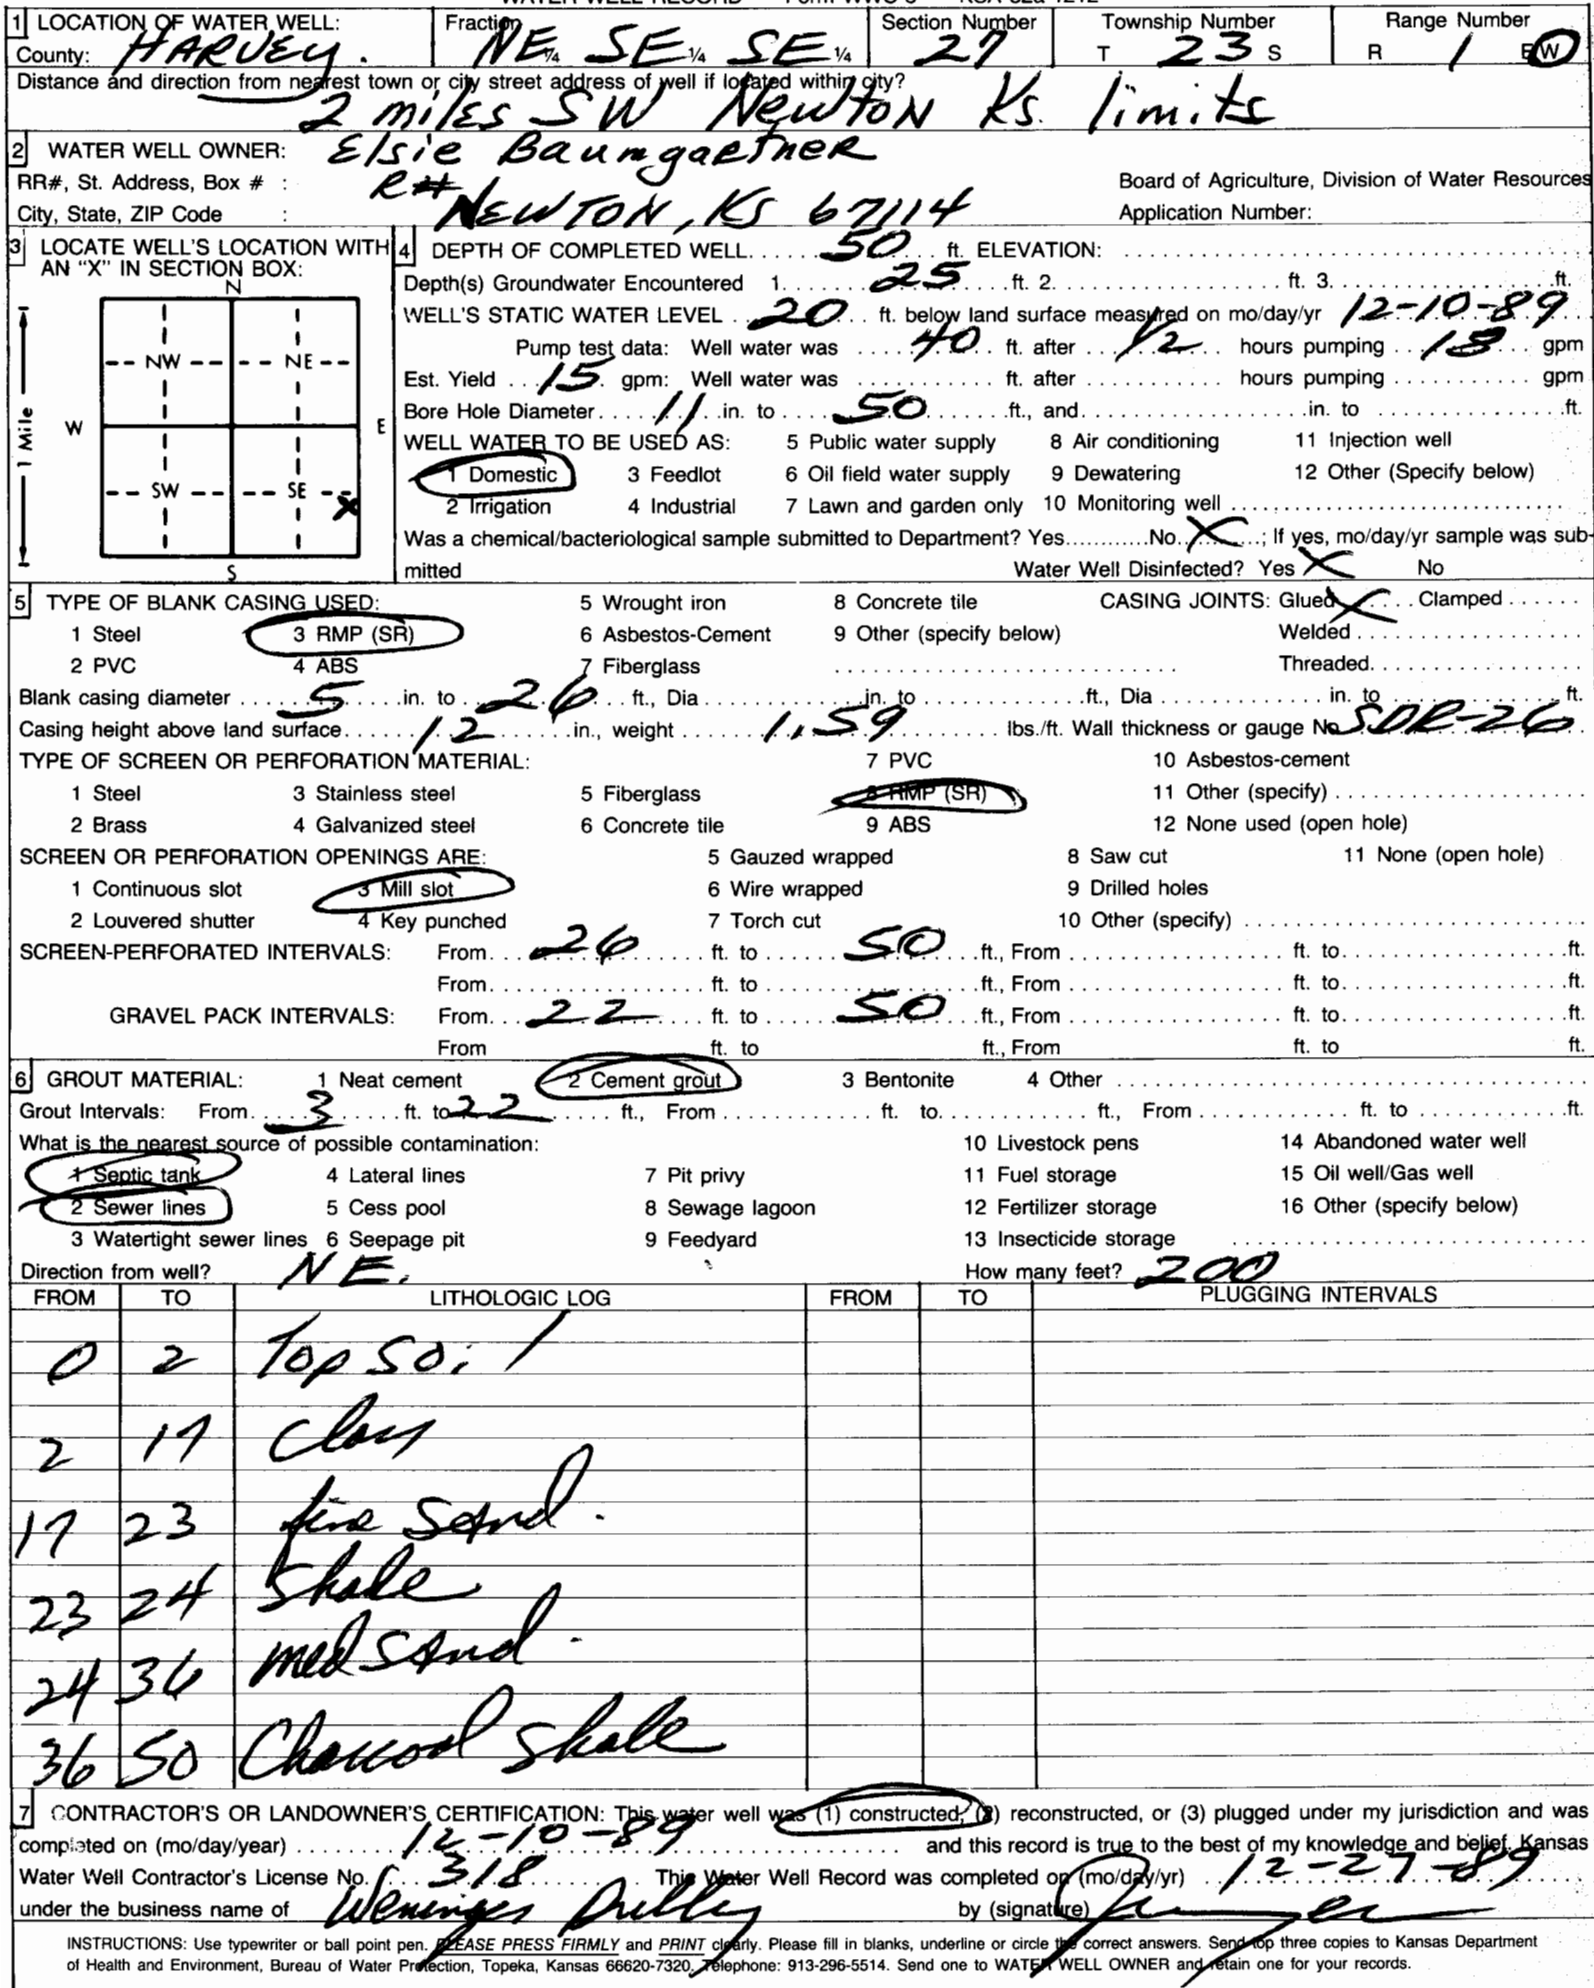 WATER WELL RECORD Form WWC-5 KSA 82a-1212
1 LOCATION OF WATER WELL: Fraction Section Number Township Number Range Number
County: HARVEY. NE ¼ SE ¼ SE ¼ 27 T 23 S R 1 E/W
Distance and direction from nearest town or city street address of well if located within city?
2 miles SW Newton Ks. limits
2 WATER WELL OWNER: Elsie Baumgartner
RR#, St. Address, Box # : R# Board of Agriculture, Division of Water Resources
City, State, ZIP Code : NEWTON, KS 67114 Application Number:
3 LOCATE WELL'S LOCATION WITH AN "X" IN SECTION BOX:
N
NW NE
W E
SW SE X
S
1 Mile
4 DEPTH OF COMPLETED WELL..... 50 .... ft. ELEVATION: ....
Depth(s) Groundwater Encountered 1. 25 ft. 2. .... ft. 3. .... ft.
WELL'S STATIC WATER LEVEL .. 20 .. ft. below land surface measured on mo/day/yr 12-10-89
Pump test data: Well water was .... 40 .. ft. after .. 1/2 .. hours pumping .. 18 .. gpm
Est. Yield .. 15 . gpm: Well water was .... ft. after .... hours pumping .... gpm
Bore Hole Diameter .... 11 .. in. to .... 50 .... ft., and .... in. to .... ft.
WELL WATER TO BE USED AS: 5 Public water supply 8 Air conditioning 11 Injection well
1 Domestic 3 Feedlot 6 Oil field water supply 9 Dewatering 12 Other (Specify below)
2 Irrigation 4 Industrial 7 Lawn and garden only 10 Monitoring well ....
Was a chemical/bacteriological sample submitted to Department? Yes.... No.. X ..; If yes, mo/day/yr sample was sub-
mitted Water Well Disinfected? Yes X No
5 TYPE OF BLANK CASING USED: 5 Wrought iron 8 Concrete tile CASING JOINTS: Glued X .... Clamped ....
1 Steel 3 RMP (SR) 6 Asbestos-Cement 9 Other (specify below) Welded ....
2 PVC 4 ABS 7 Fiberglass .... Threaded ....
Blank casing diameter .... 5 .... in. to .. 26 .. ft., Dia .... in. to .... ft., Dia .... in. to .... ft.
Casing height above land surface .... 12 .... in., weight .... 1.59 .... lbs./ft. Wall thickness or gauge No SDR-26
TYPE OF SCREEN OR PERFORATION MATERIAL: 7 PVC 10 Asbestos-cement
1 Steel 3 Stainless steel 5 Fiberglass 8 RMP (SR) 11 Other (specify) ....
2 Brass 4 Galvanized steel 6 Concrete tile 9 ABS 12 None used (open hole)
SCREEN OR PERFORATION OPENINGS ARE: 5 Gauzed wrapped 8 Saw cut 11 None (open hole)
1 Continuous slot 3 Mill slot 6 Wire wrapped 9 Drilled holes
2 Louvered shutter 4 Key punched 7 Torch cut 10 Other (specify) ....
SCREEN-PERFORATED INTERVALS: From .. 26 .. ft. to .... 50 .. ft., From .... ft. to .... ft.
From .... ft. to .... ft., From .... ft. to .... ft.
GRAVEL PACK INTERVALS: From .. 22 .. ft. to .... 50 .. ft., From .... ft. to .... ft.
From ft. to ft., From ft. to ft.
6 GROUT MATERIAL: 1 Neat cement 2 Cement grout 3 Bentonite 4 Other ....
Grout Intervals: From .... 3 .... ft. to 22 .... ft., From .... ft. to .... ft., From .... ft. to .... ft.
What is the nearest source of possible contamination: 10 Livestock pens 14 Abandoned water well
1 Septic tank 4 Lateral lines 7 Pit privy 11 Fuel storage 15 Oil well/Gas well
2 Sewer lines 5 Cess pool 8 Sewage lagoon 12 Fertilizer storage 16 Other (specify below)
3 Watertight sewer lines 6 Seepage pit 9 Feedyard 13 Insecticide storage ....
Direction from well? NE. How many feet? 200
FROM TO LITHOLOGIC LOG FROM TO PLUGGING INTERVALS
0 2 Top soil
2 17 Clay
17 23 fine sand.
23 24 Shale
24 36 med sand.
36 50 Charcoal Shale
7 CONTRACTOR'S OR LANDOWNER'S CERTIFICATION: This water well was (1) constructed, (2) reconstructed, or (3) plugged under my jurisdiction and was
completed on (mo/day/year) .... 12-10-89 .... and this record is true to the best of my knowledge and belief. Kansas
Water Well Contractor's License No. .. 318 .... This Water Well Record was completed on (mo/day/yr) .. 12-27-89 ..
under the business name of Weninger Drilling by (signature)
INSTRUCTIONS: Use typewriter or ball point pen. PLEASE PRESS FIRMLY and PRINT clearly. Please fill in blanks, underline or circle the correct answers. Send top three copies to Kansas Department
of Health and Environment, Bureau of Water Protection, Topeka, Kansas 66620-7320. Telephone: 913-296-5514. Send one to WATER WELL OWNER and retain one for your records.